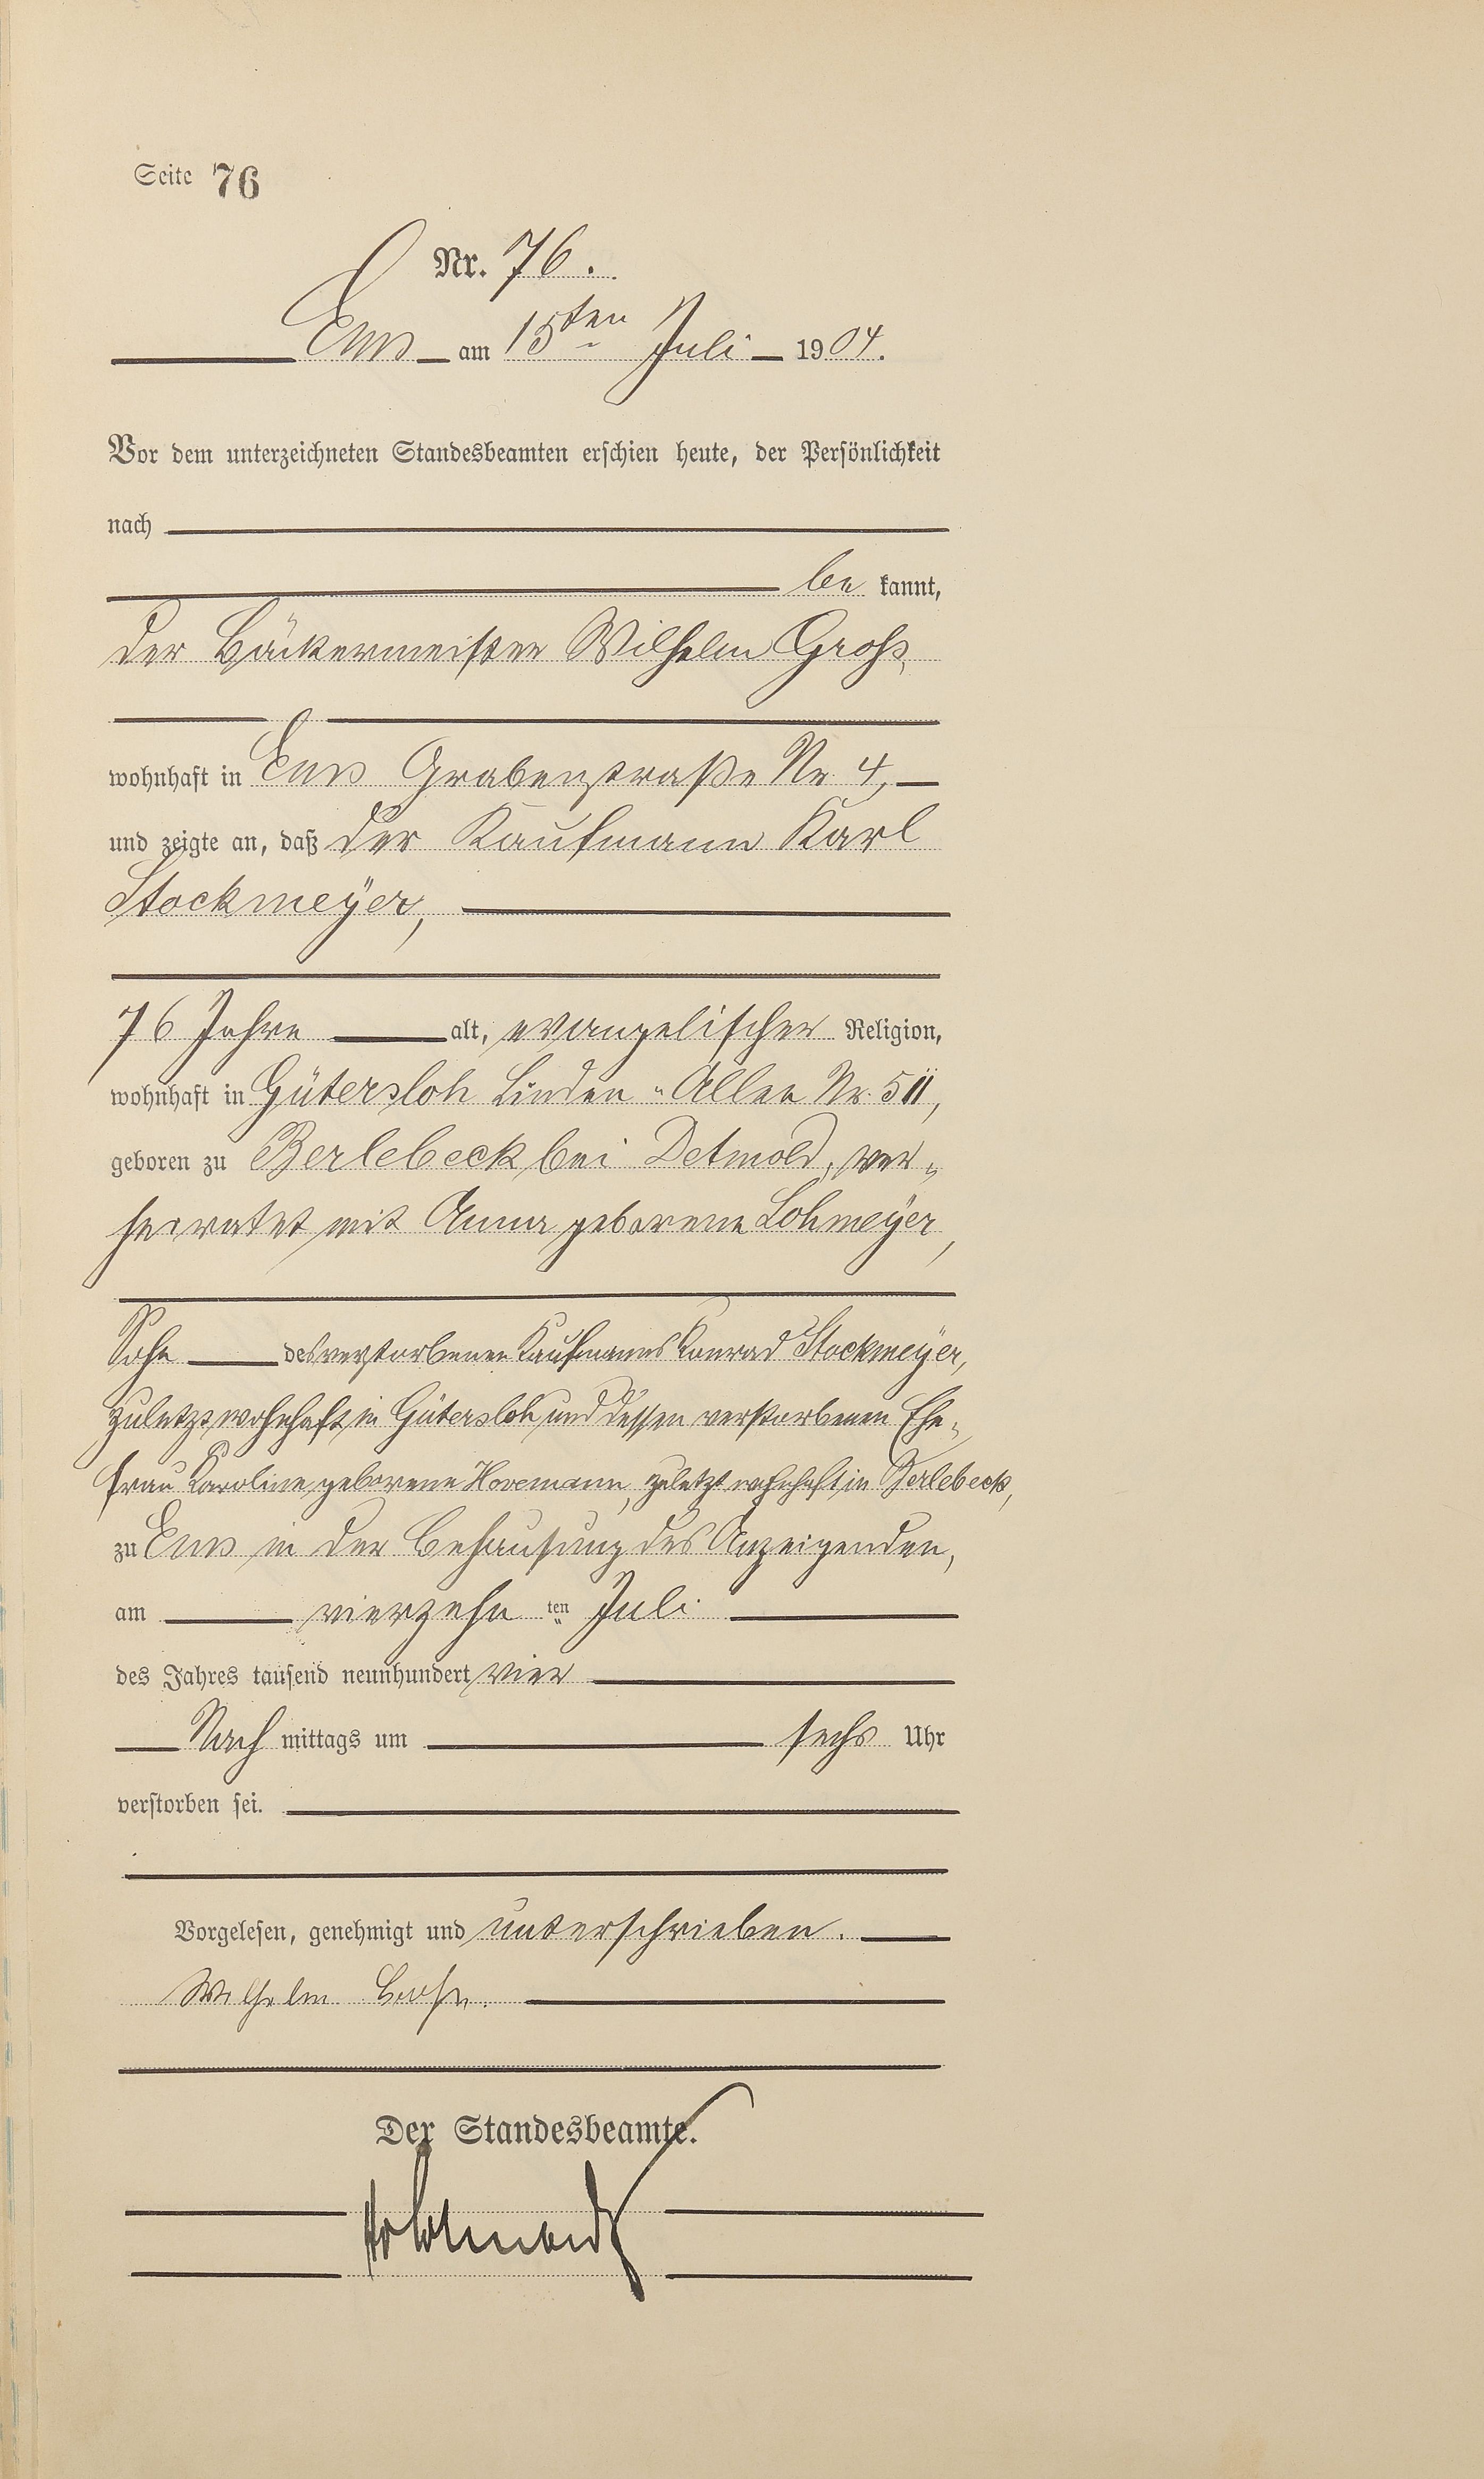 Seite 76
Nr. 76.
Ems am 15ten Juli 1904.
Vor dem unterzeichneten Standesbeamten erschien heute, der Persönlichkeit
nach
be kannt,
der Bäckermeister Wilhelm Groß,
wohnhaft in Ems Grabenstraße Nr. 4,
und zeigte an, daß der Kaufmann Karl
Stockmeÿer,
76 Jahre alt, evangelischer Religion,
wohnhaft in Gütersloh Linden-Allee Nr.
geboren zu Berlebeck bei Detmold, ver-
heiratet mit Anna geborene Lohmeÿer,
Sohn des verstorbenen Kaufmanns Konrad Stockmeÿer,
zuletzt wohnhaft in Gütersloh und dessen verstorbenen Ehe-
frau Karoline geborene zuletzt wohnhaft in Berlebeck,
zu Ems in der Behausung des Anzeigenden,
am vierzehn ten Juli
des Jahres tausend neunhundert vier
Nach mittags um sechs Uhr
verstorben sei.
Vorgelesen, genehmigt und unterschrieben.
Wilhelm
Der Standesbeamte.